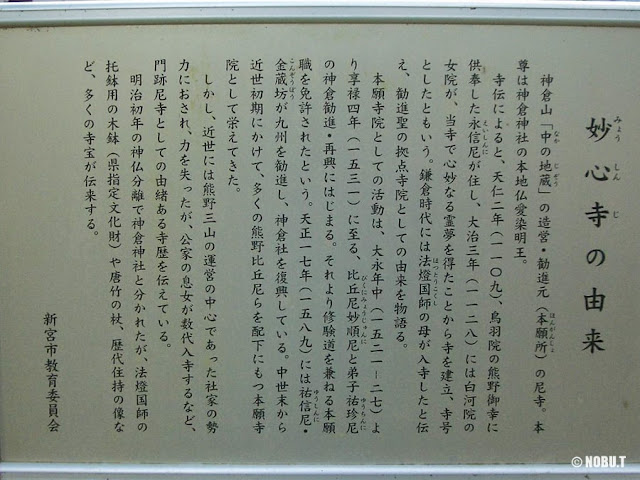 妙心寺の由来
みょう しん じ
神倉山「中の地蔵」の造営・勧進元（本願所）の尼寺。本
なか じぞう ほんがんしょ
尊は神倉神社の本地仏愛染明王。
寺伝によると、天仁二年（一一〇九）、鳥羽院の熊野御幸に
供奉した永信尼が住し、大治三年（一一二八）には白河院の
えいしんに
女院が、当寺で心妙なる霊夢を得たことから寺を建立、寺号
としたともいう。鎌倉時代には法燈国師の母が入寺したと伝
ほっとうこくし
え、勧進聖の拠点寺院としての由来を物語る。
本願寺院としての活動は、大永年中（一五二一ー二七）よ
り享禄四年（一五三一）に至る、比丘尼妙順尼と弟子祐珍尼
びくにみょうじゅんに ゆうちんに
の神倉勧進・再興にはじまる。それより修験道を兼ねる本願
職を免許されたという。天正一七年（一五八九）には祐信尼・
ゆうしんに
金蔵坊が九州を勧進し、神倉社を復興している。中世末から
こんぞうぼう
近世初期にかけて、多くの熊野比丘尼らを配下にもつ本願寺
院として栄えてきた。
しかし、近世には熊野三山の運営の中心であった社家の勢
力におされ、力を失ったが、公家の息女が数代入寺するなど、
門跡尼寺としての由緒ある寺歴を伝えている。
明治初年の神仏分離で神倉神社と分かれたが、法燈国師の
托鉢用の木鉢（県指定文化財）や唐竹の杖、歴代住持の像な
ど、多くの寺宝が伝来する。
新宮市教育委員会
© NOBU.T